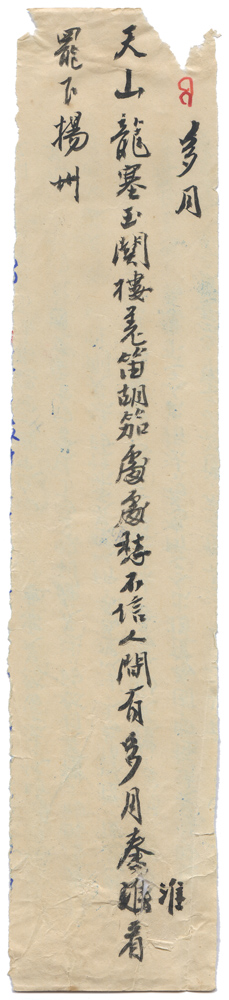 8
多月
天山龍塞玉關樓羌笛胡笳處處愁不信人間有多月秦淮看
罷下揚州